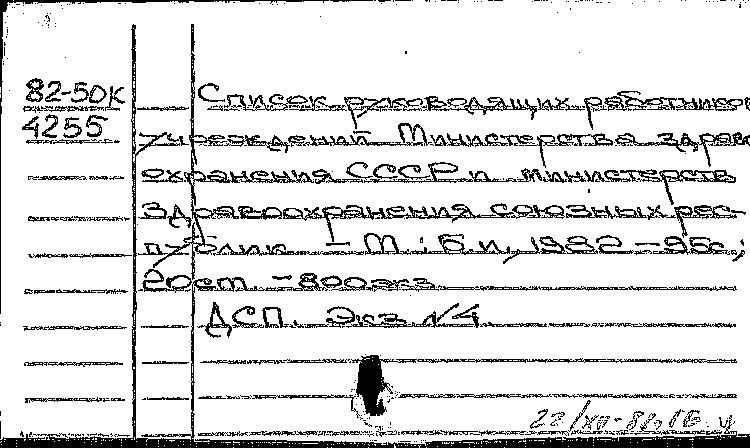 82-50К
4255
Список руководящих работников
учреждений Министерства здраво
охранения СССР и министерств
здравоохранения союзных рес-
публик. - М.: Б.и., 1982 - 95с.;
20см. - 800экз.
ДСП. Экз. №4.
22/XII-82,